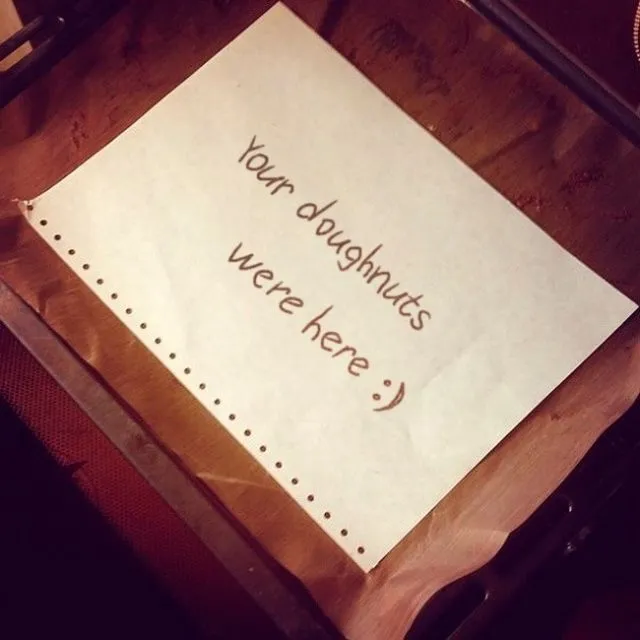 Your doughnuts
were here :)